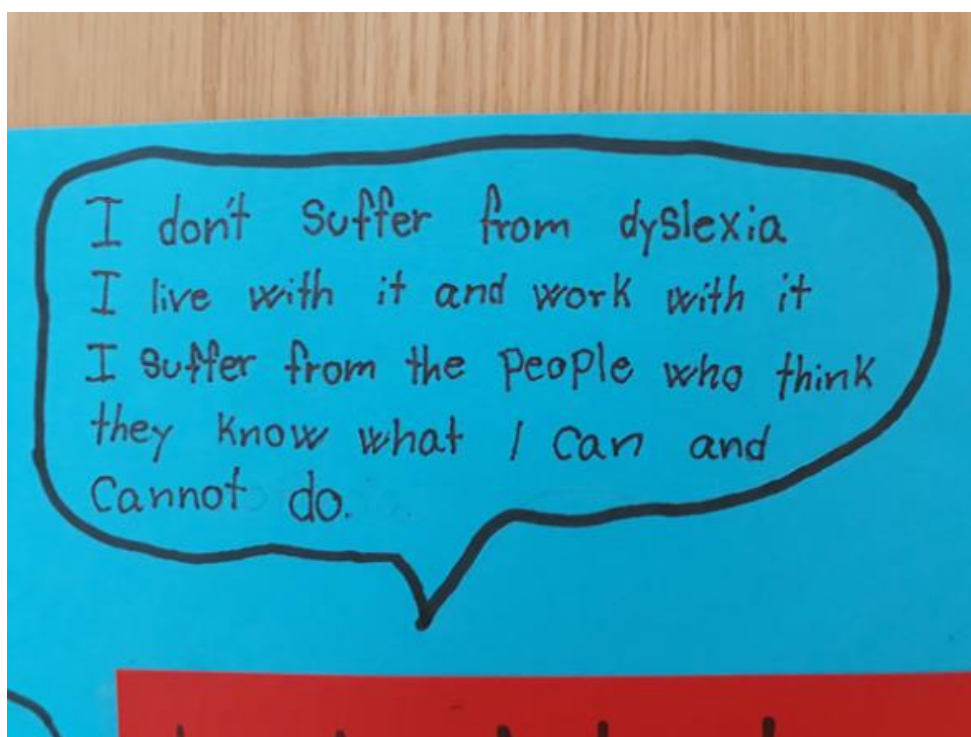 I don't suffer from dyslexia
I live with it and work with it
I suffer from the people who think
they know what I can and
cannot do.